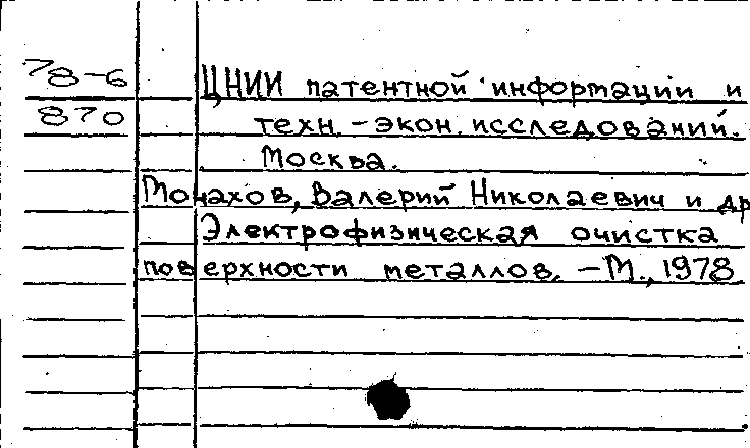 78-6 ЦНИИ патентной информации и
870 техн.-экон. исследований.
Москва.
Монахов, Валерий Николаевич и др
Электрофизическая очистка
поверхности металлов. - М., 1978